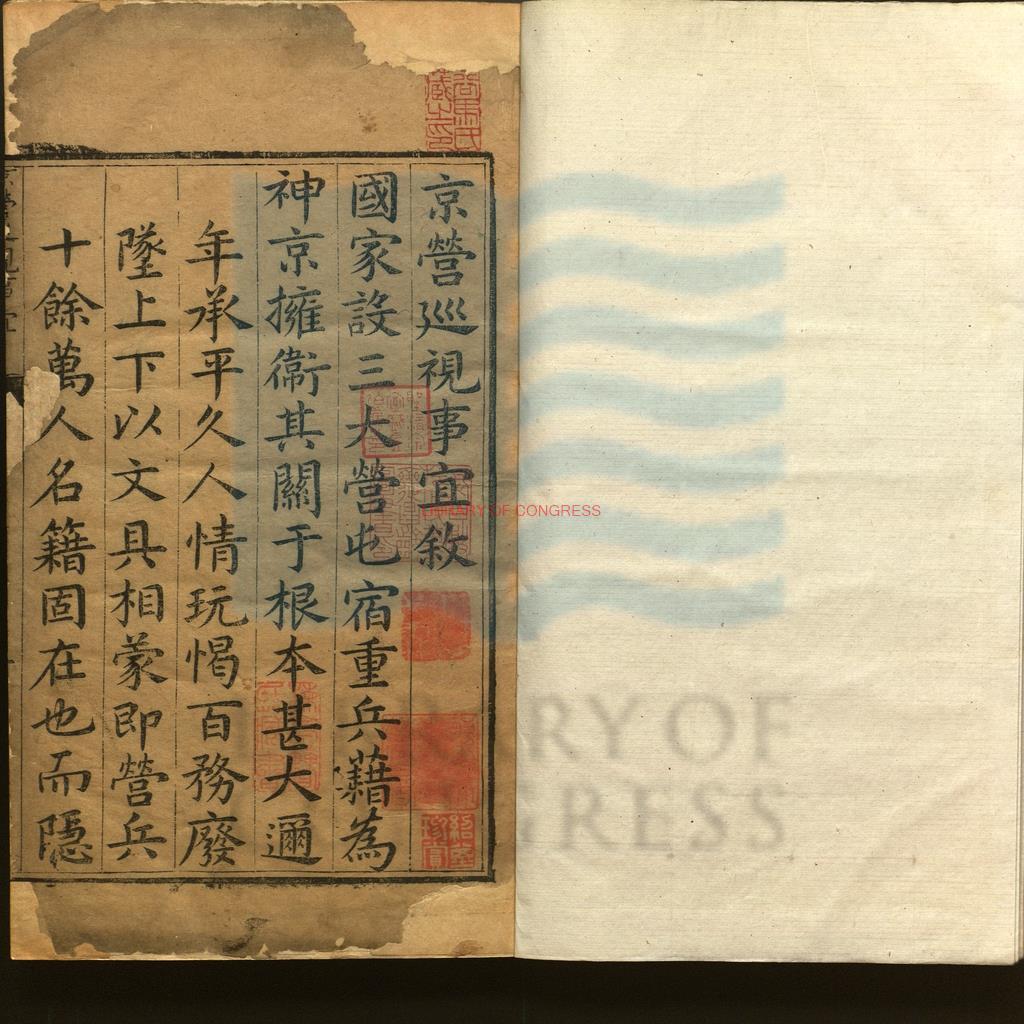 京營巡視事宜敘
國家設三大營屯宿重兵藉為
神京擁衛其關于根本甚大邇
年承平久人情玩愒百務廢
墜上下以文具相蒙即營兵
十餘萬人名籍固在也而隱
LIBRARY OF CONGRESS